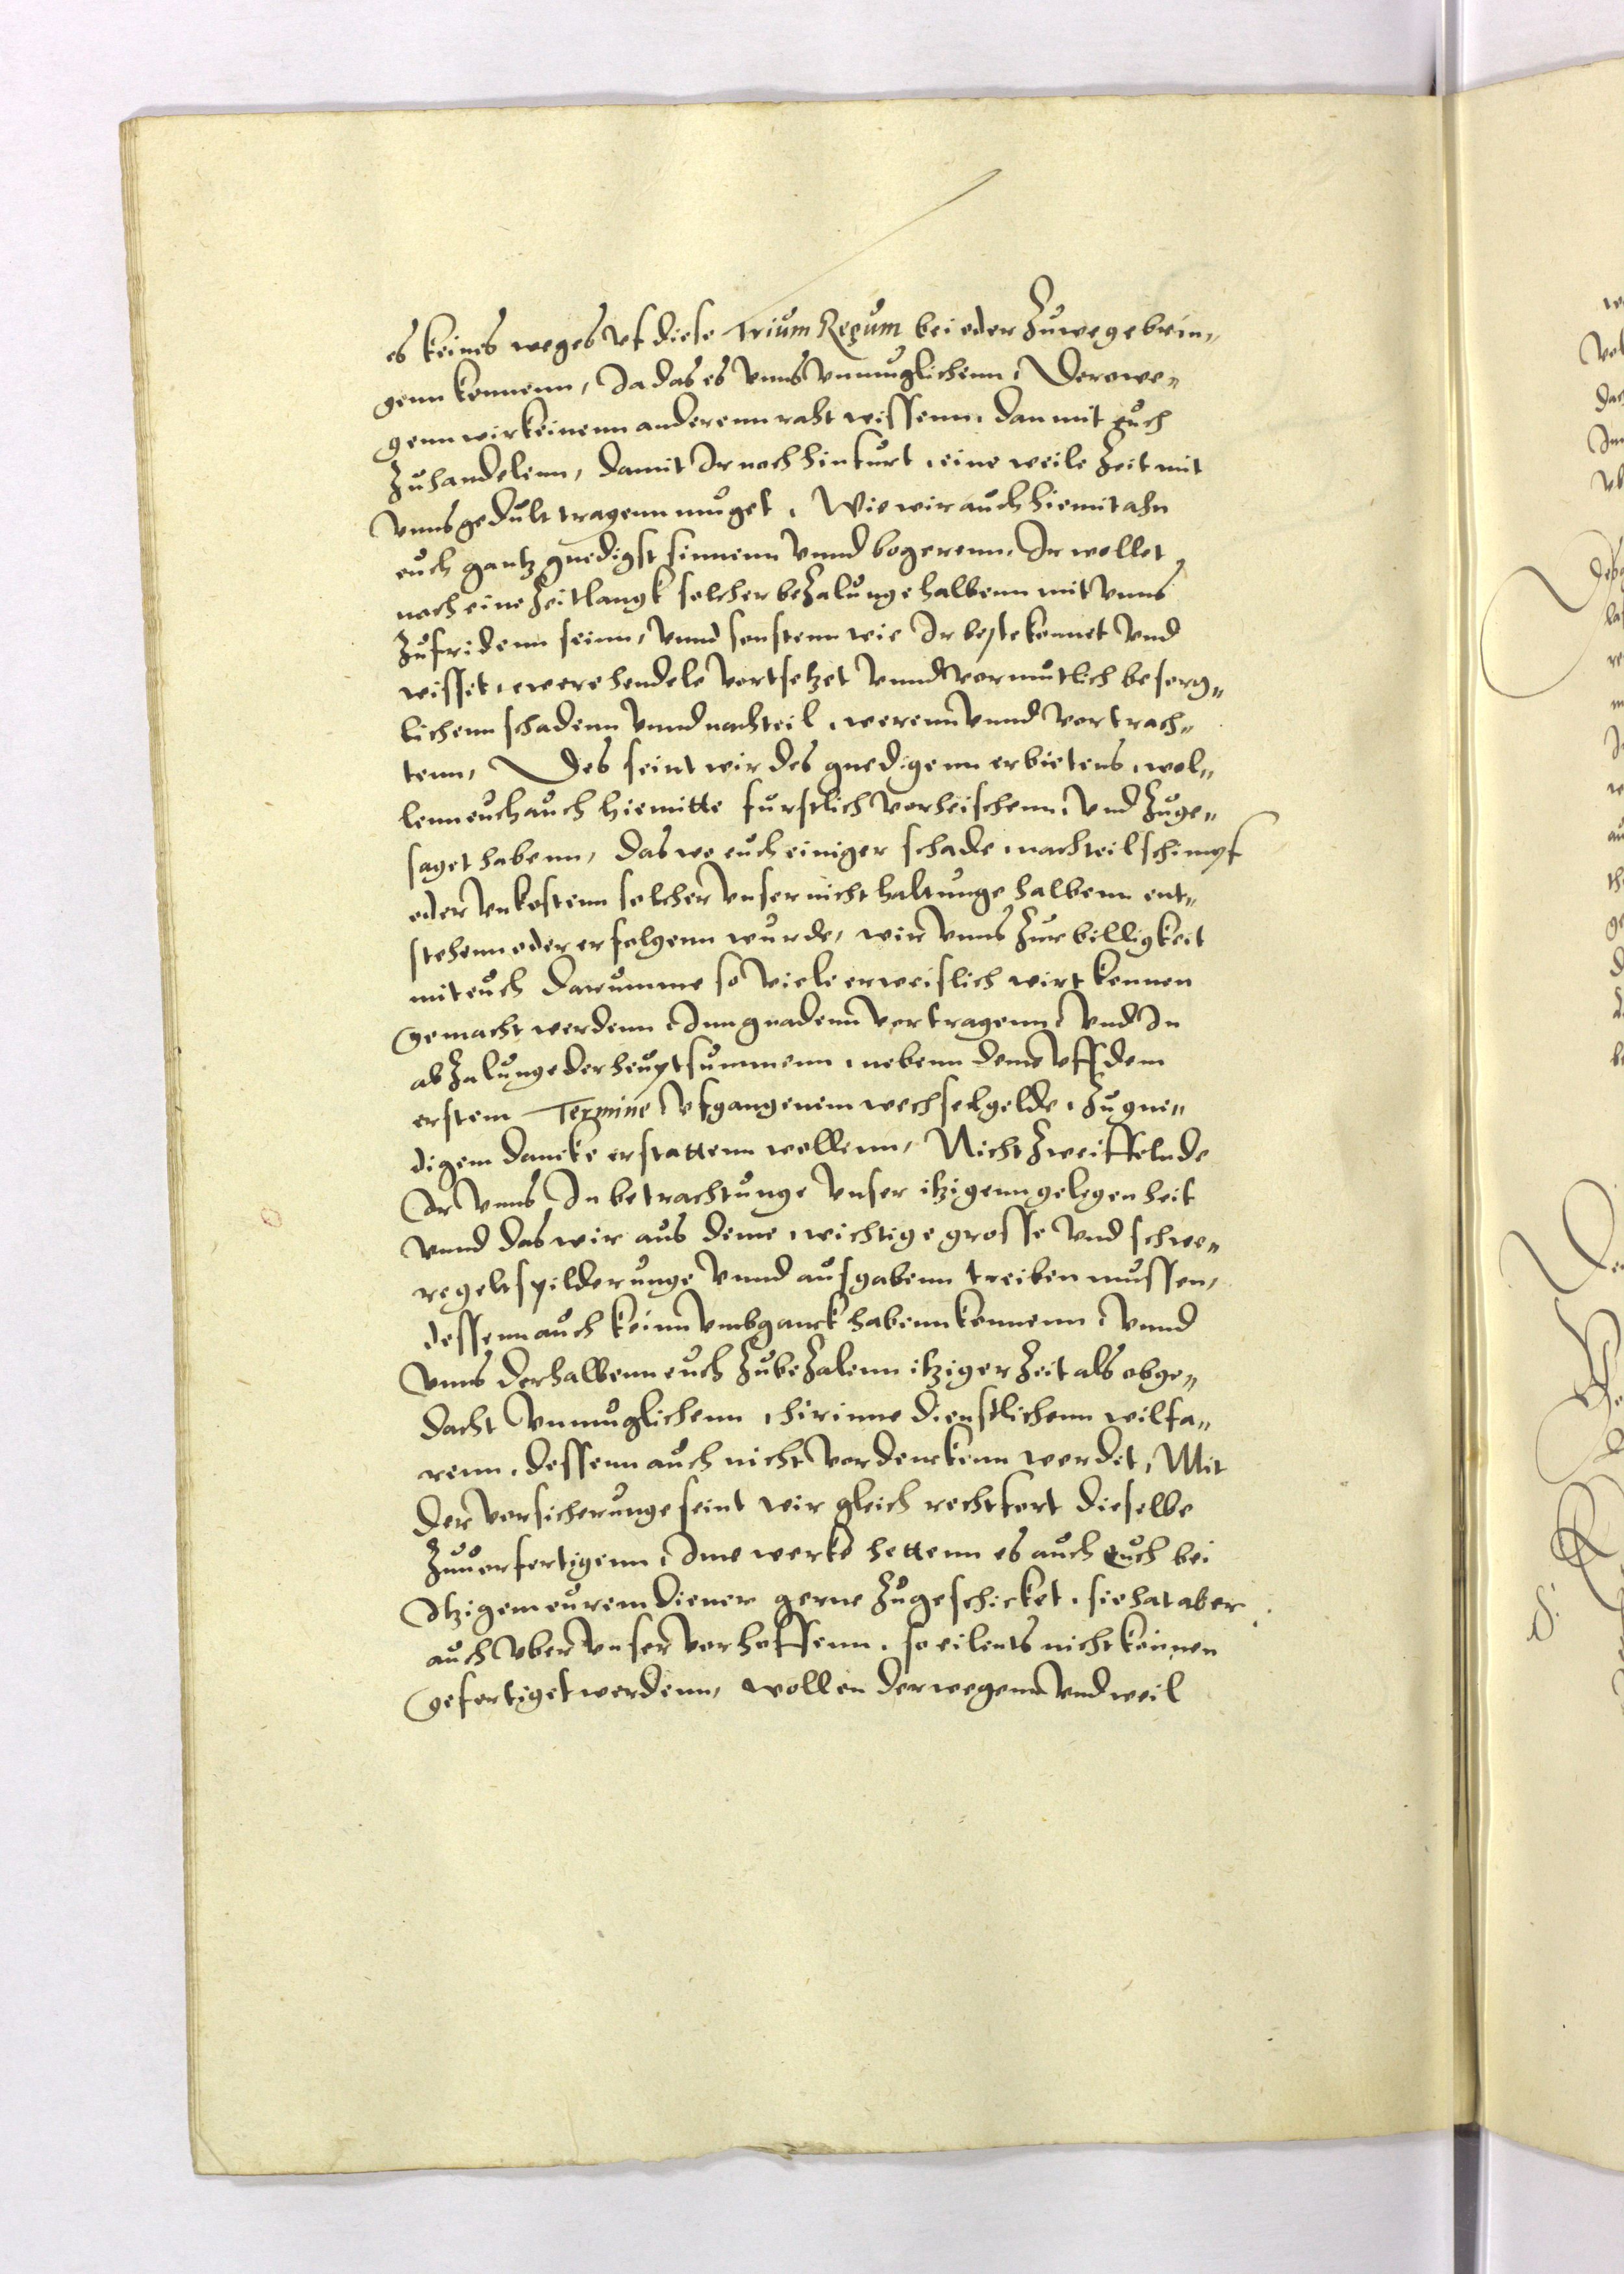 es keines weges vf diese Trium Regum bei oder zuwege brin„
genn konnenn, Ja das es vnns vnmuglichenn, Derowe„
genn wir keinenn anderenn raht wissenn, dan mit euch
zuhandelenn, damit Ir noch hinfurt, eine weile Zeit mit
vnns gedult tragenn muget, Wie wir auch hiemit ahn
euch gantz gnedigst sinnenn vnnd bogerenn, Ir wollet
noch eine Zeitlangk solcher bezalunge halbenn mit vnns
zufridenn seinn, vnnd sonstenn wie Ir beste konnet vnd
wisset, ewere hendele vortsetzet vnnd vormutlich besorg„
lichenn schadenn vnnd nachteil, werenn vnnd vortrach„
tenn, Des seint wir des gnedigenn erbietens, wol„
lenn euch auch hiemitte furstlich vorheischenn, vnd zuge„
saget habenn, das wo euch einiger schade, nachteil schimpf
oder vnkostenn solcher vnser nicht haltunge halbenn ent„
stehenn oder erfolgenn wurde, wir vnns zur billigkeit
mit euch darumme so viele erweislich wirt konnen
gemacht werdenn, Inn gnadenn vortragenn, vnd In
abzalunge der heuptsummenn, nebenn deme vff dem
erstem Termine vfgangenem wechselgelde, zu gne„
digem dancke erstattenn wollenn, Nicht zweiffelnde
Ir vnns In betrachtunge vnser itzigenn gelegenheit
vnnd das wir aus deme, wichtige grosse vnd schwe„
re geltspilderunge vnnd ausgabenn treiben mussen,
dessenn auch keinn vmbganck habenn konnenn, vnnd
vnns derhalbenn euch zubezalenn itziger Zeit als obge„
dacht vnmuglichenn, hirinne dienstlichenn wilfa„
renn, dessenn auch nicht vordenckenn werdet, Mit
der vorsicherunge seint wir gleich rechtfort dieselbe
zuuorfertigenn, Ime wercke hettenn es auch euch bei
Itzigem eurem diener gerne zugeschicket, sie hat aber
auch vber vnser vorhoffenn, so eilents nicht konnen
gefertiget werdenn, wollen derwegenn vnd weil